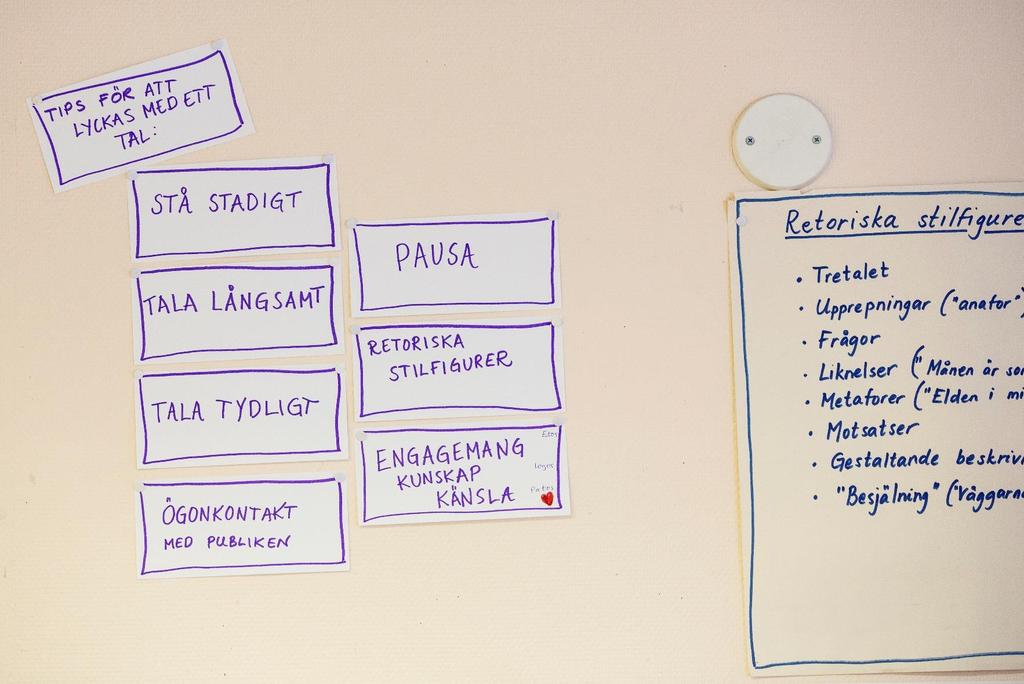 TIPS FÖR ATT
LYCKAS MED ETT
TAL:
STÅ STADIGT
TALA LÅNGSAMT
TALA TYDLIGT
ÖGONKONTAKT
MED PUBLIKEN
PAUSA
RETORISKA
STILFIGURER
ENGAGEMANG
KUNSKAP
KÄNSLA
Etos
Logos
Patos
Retoriska stilfigure
• Tretalet
• Upprepningar ("anafor")
• Frågor
• Liknelser ("Månen är so
• Metaforer ("Elden i mi
• Motsatser
• Gestaltande beskriv
• "Besjälning" ("Väggarn